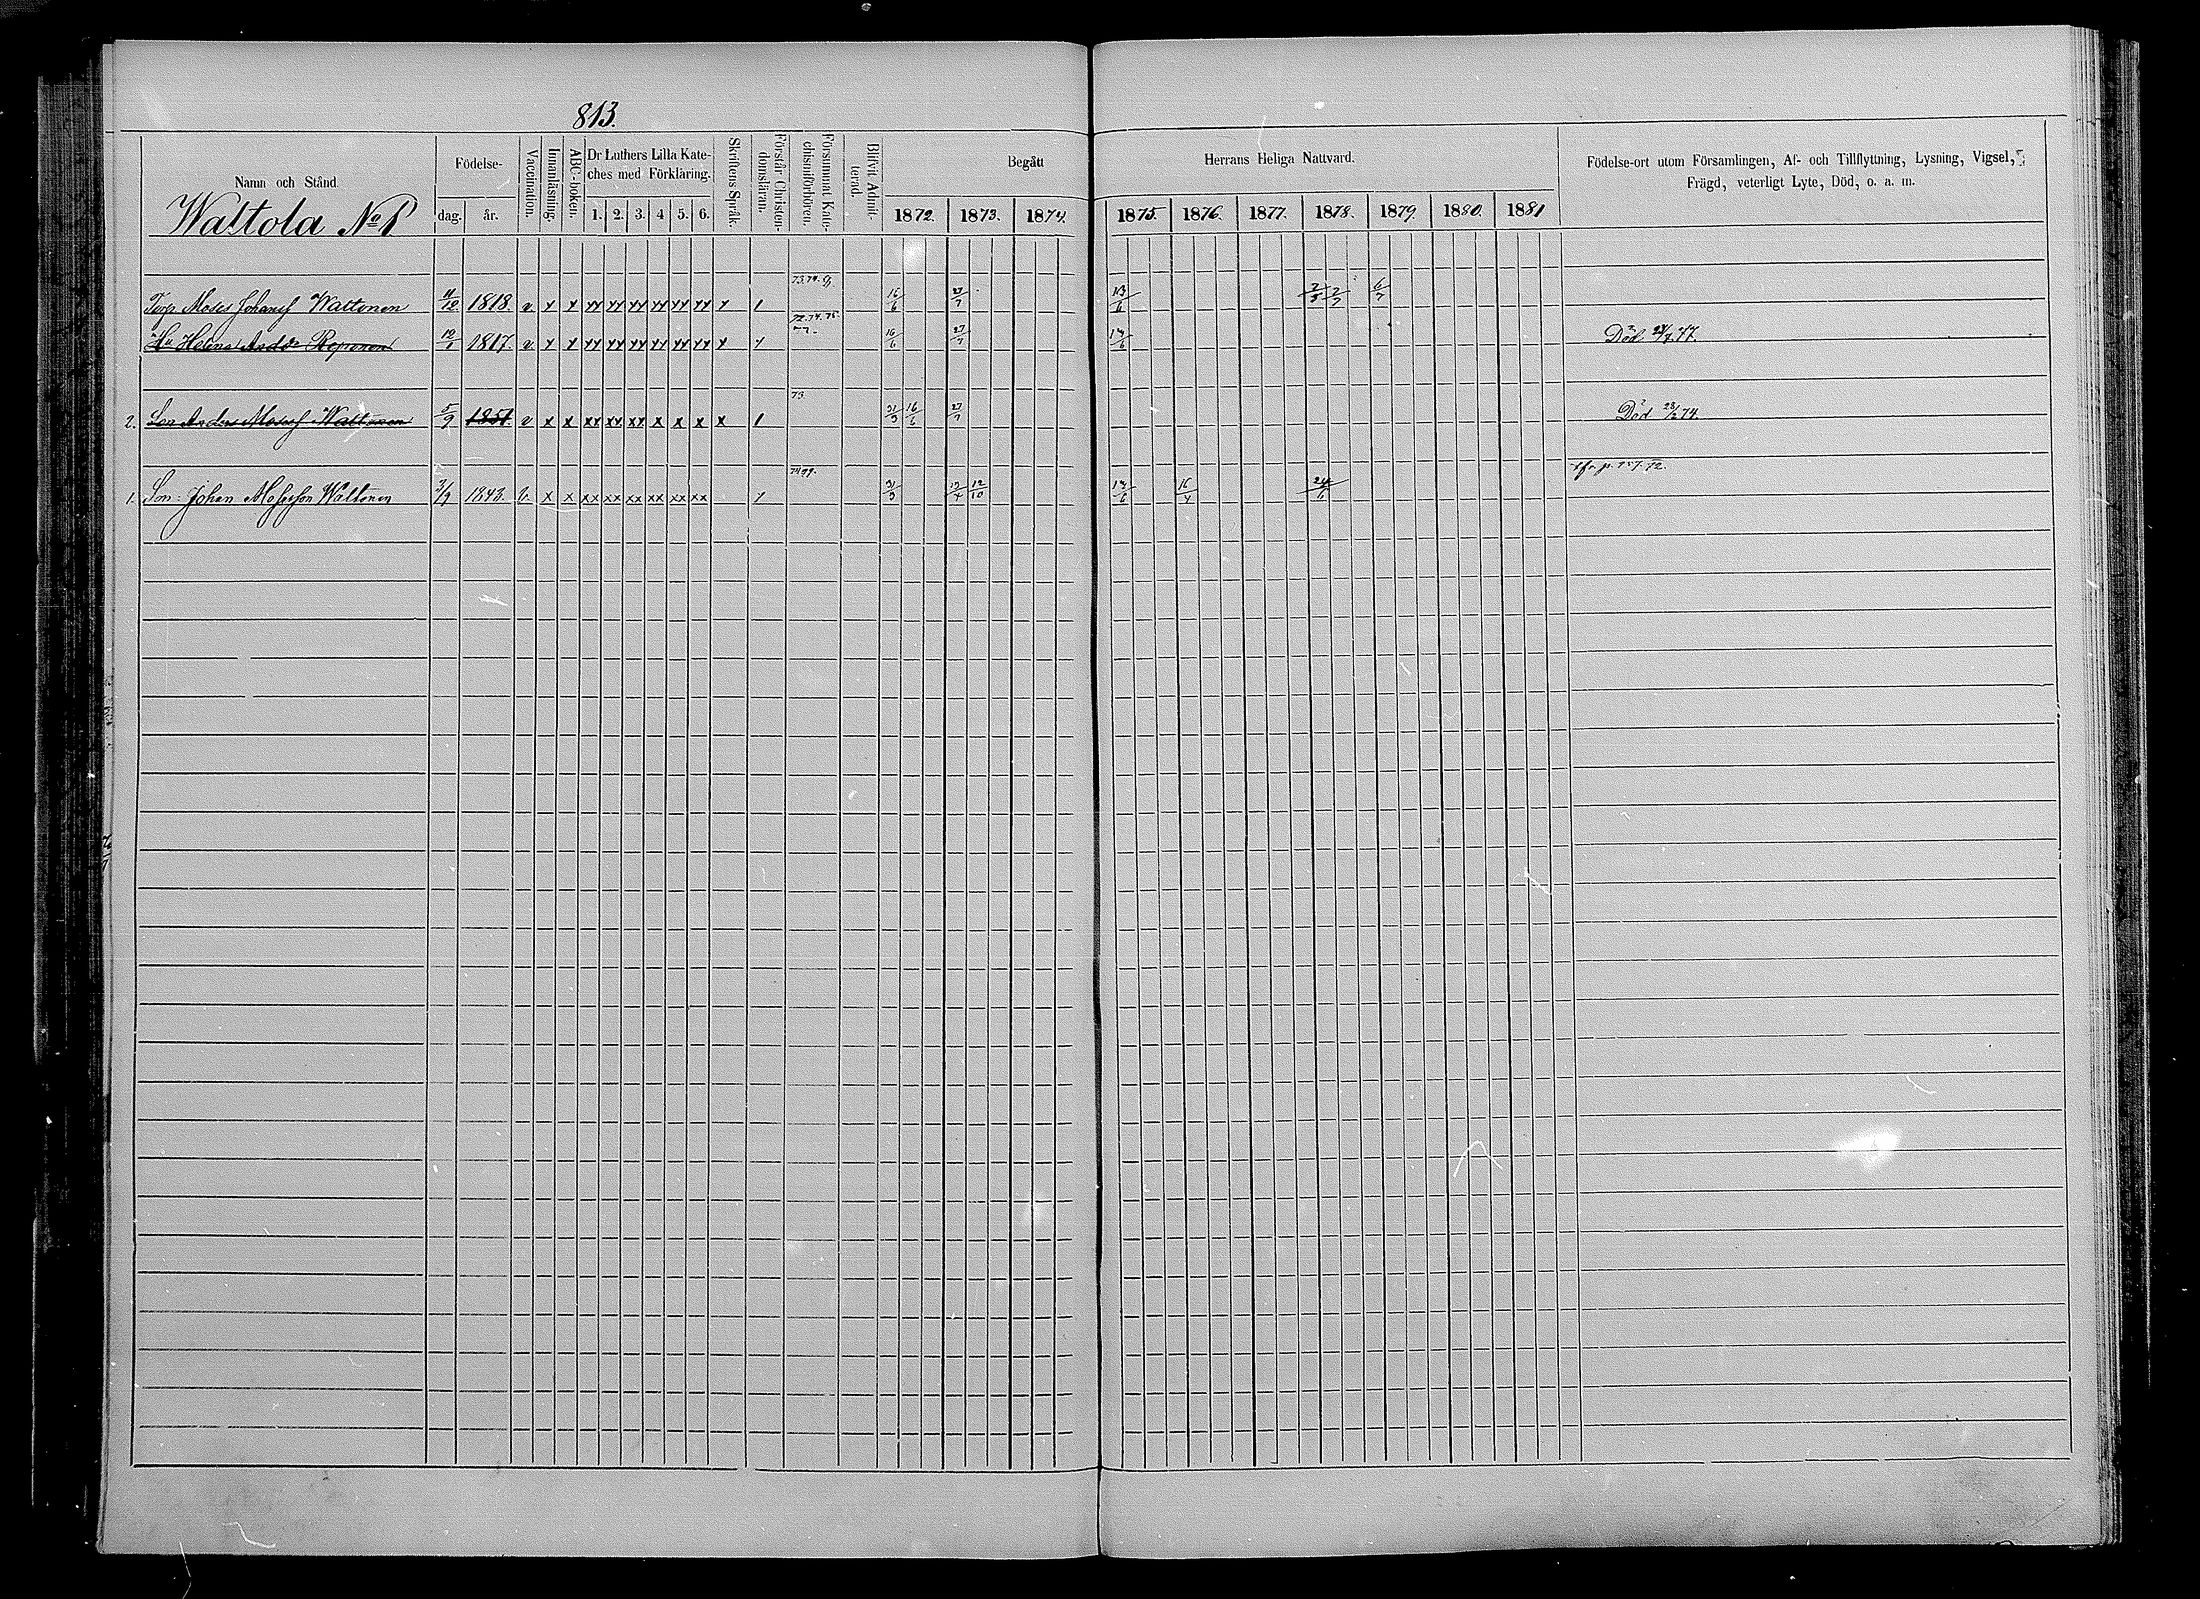 813.
Namn och Stånd.
Födelse-
dag. år.
Vaccination.
Innanläsning.
ABC-boken.
Dr Luthers Lilla Kate-
ches med Förklaring.
1. 2. 3. 4 5. 6.
Skriftens Språk.
Förstår Christen-
domsläran.
Försummat Kate-
chismiförhören.
Blifvit Admit-
terad.
Begått Herrans Heliga Nattvard.
1872. 1873. 1874. 1875. 1876. 1877. 1878. 1879. 1880. 1881
Födelse-ort utom Församlingen, Af- och Tillflyttning, Lysning, Vigsel,
Frägd, veterligt Lyte, Död, o. a. m.
Waltola No 1
Torp. Moses Johansf Waltonen 11/12 1818. v x x xx xx xx xx xx xx x 1 16/6 27/7 13/6 2/7 6/7
Hu Helena Andd. Reponen 10/1 1817. v x x xx xx xx xx xx xx x 16/6 27/7 13/6 Död 24/7 77.
73
2. Son Anders Mosesf Waltonen 5/9 1851. v x x xx xx xx x x x x 1 31/3 16/6 27/7 Död 28/2 74.
1. Son: Johan Mosesson Waltonen 3/9 1843. v x x xx xx xx xx xx xx 31/3 13/4 12/10 13/6 16/4 24/6